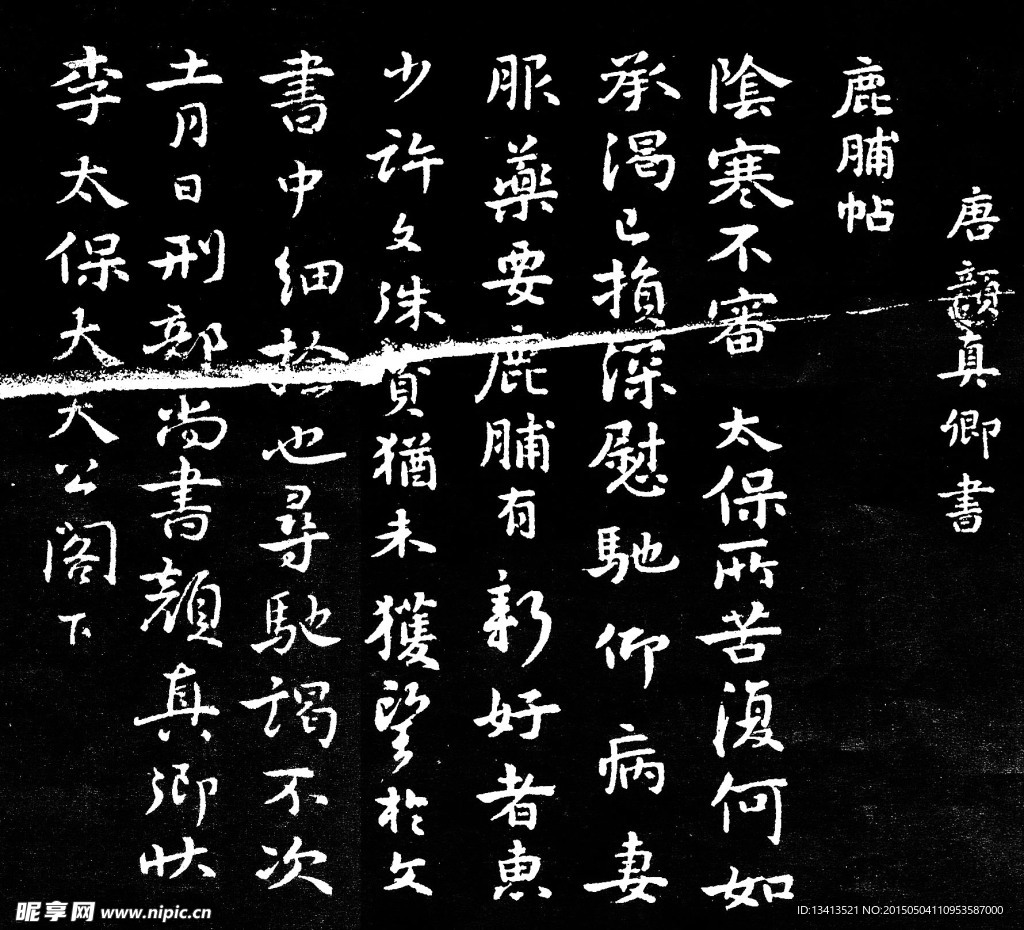 唐顏真卿書
鹿脯帖
陰寒不審 太保所苦復何如
承渴已損深慰馳仰病妻
服藥要鹿脯有新好者惠
少許文殊猶未獲望於文
書中細撿也尋馳謁不次
十一月日刑部尚書顏真卿狀
李太保大夫公閣下
昵享网 www.nipic.cn
ID:13413521 NO:20150504110953587000